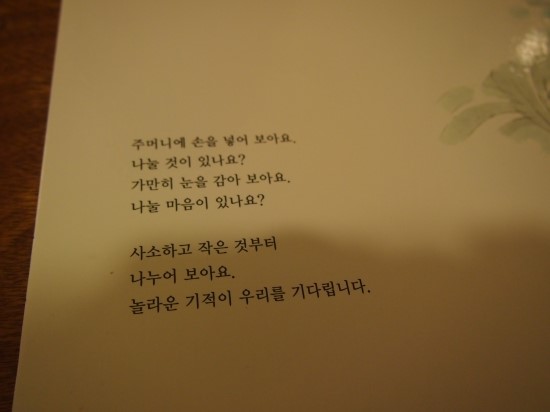 주머니에 손을 넣어 보아요.
나눌 것이 있나요?
가만히 눈을 감아 보아요.
나눌 마음이 있나요?
사소하고 작은 것부터
나누어 보아요.
놀라운 기적이 우리를 기다립니다.